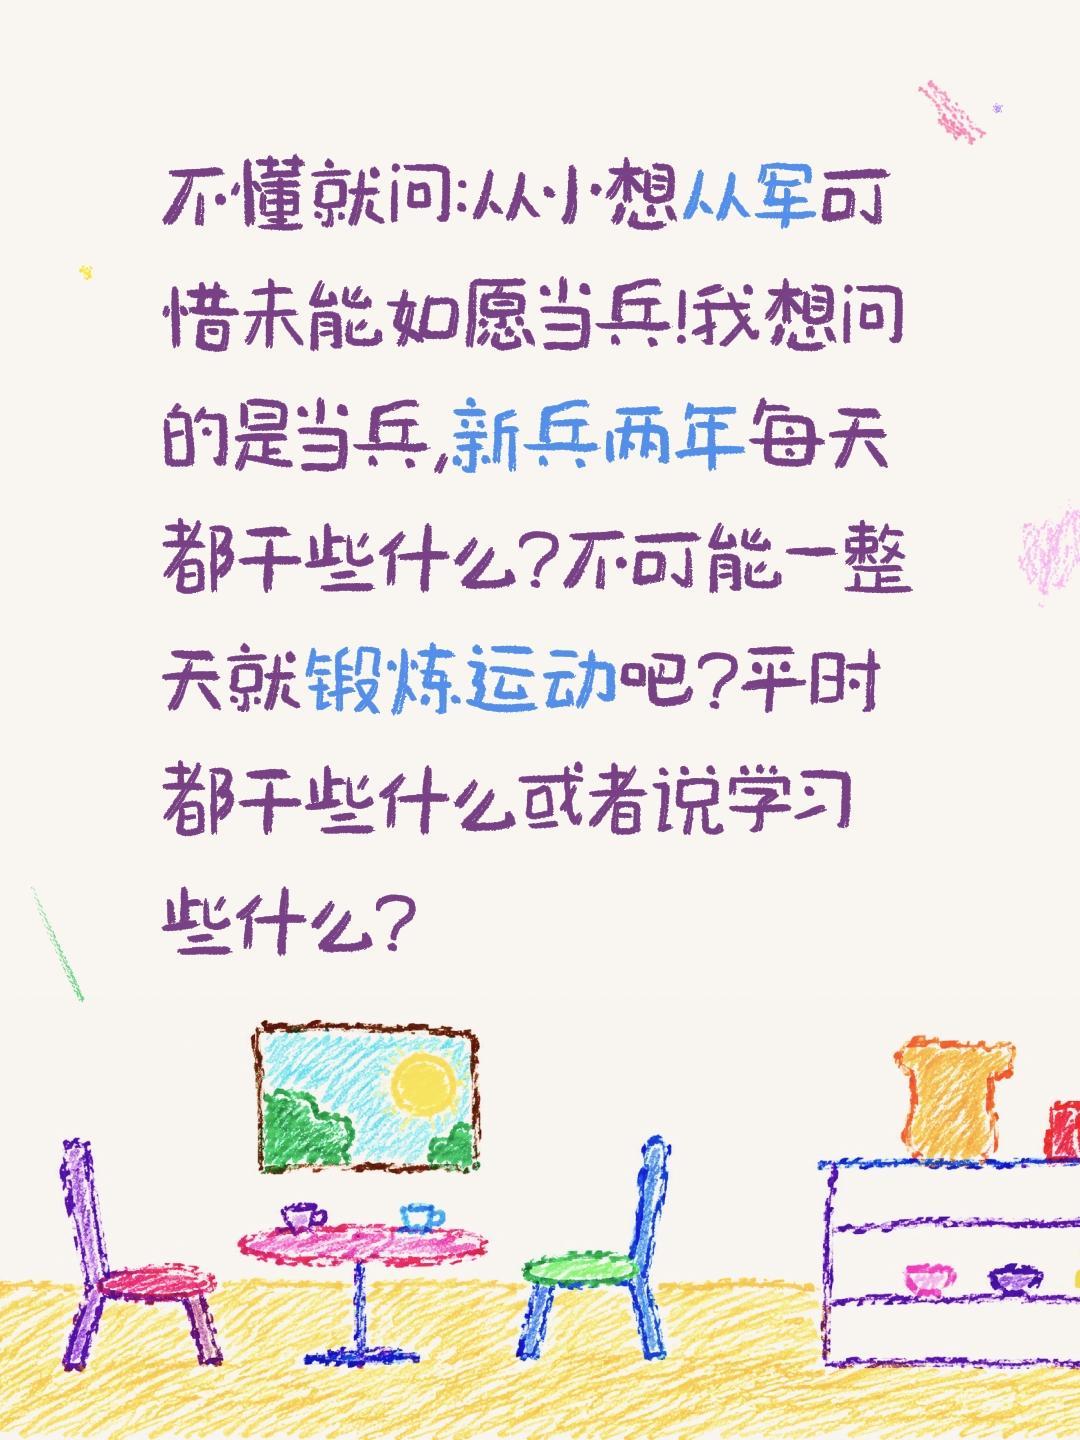 不懂就问:从小想从军可
惜未能如愿当兵!我想问
的是当兵,新兵两年每天
都干些什么?不可能一整
天就锻炼运动吧?平时
都干些什么或者说学习
些什么?